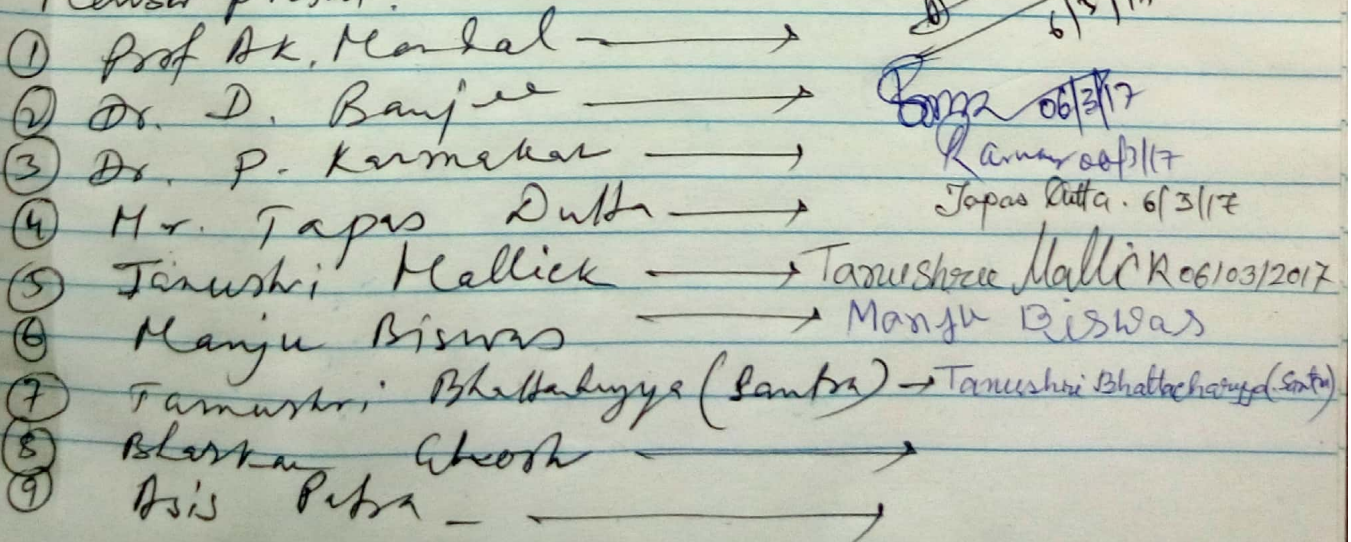 ① Prof AK. Mondal → 6/3/17
② Dr. D. Banjee → 06/3/17
③ Dr. P. Karmakar → Karmakar 06/3/17
④ Mr. Tapas Dutta → Tapas Dutta. 6/3/17
⑤ Tanushri Mallick → Tanushree Mallick 06/03/2017
⑥ Manju Biswas → Manju Biswas
⑦ Tanushri Bhattacharyya (Santra) → Tanushri Bhattacharyya (Santra)
⑧ Bhaskar Ghosh →
⑨ Asis Patra — →